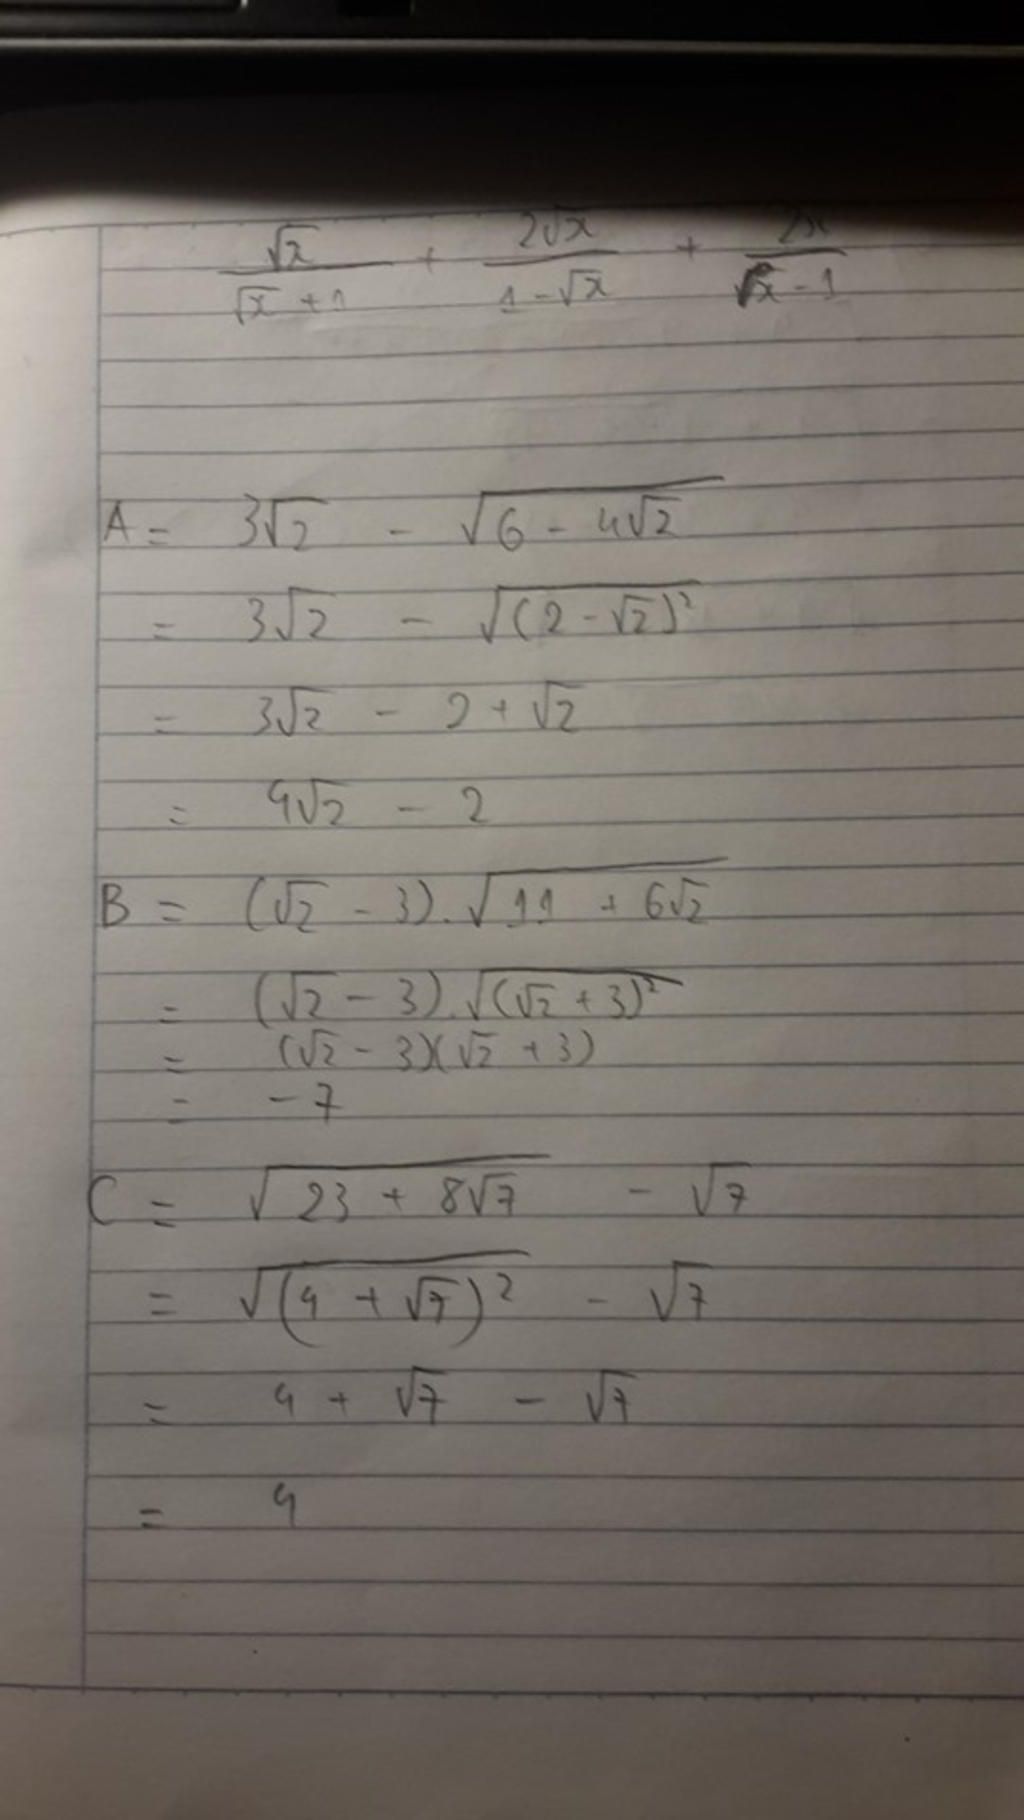 √x/(√x + 1) + 2√x/(1 - √x) + 2x/(√x - 1)
A = 3√2 - √(6 - 4√2)
= 3√2 - √((2 - √2)²)
= 3√2 - 2 + √2
= 4√2 - 2
B = (√2 - 3).√(11 + 6√2)
= (√2 - 3).√((√2 + 3)²)
= (√2 - 3)(√2 + 3)
= -7
C = √(23 + 8√7) - √7
= √((4 + √7)²) - √7
= 4 + √7 - √7
= 4